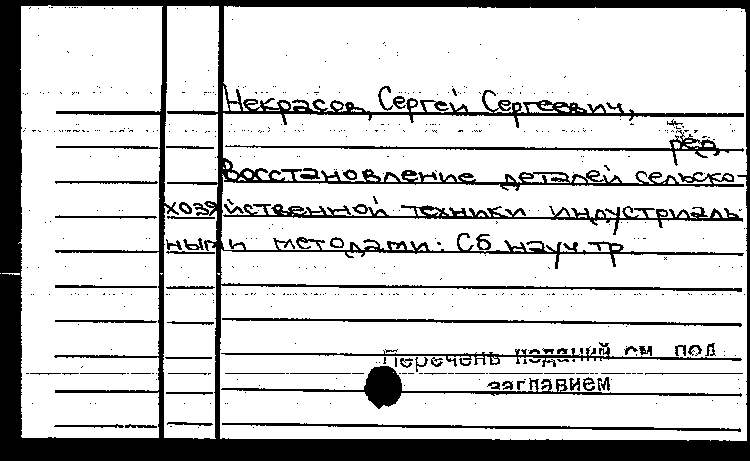 Некрасов, Сергей Сергеевич,
ред.
Восстановление деталей сельско-
хозяйственной техники индустриаль
ными методами: Сб. науч. тр
Перечень изданий см. под
заглавием